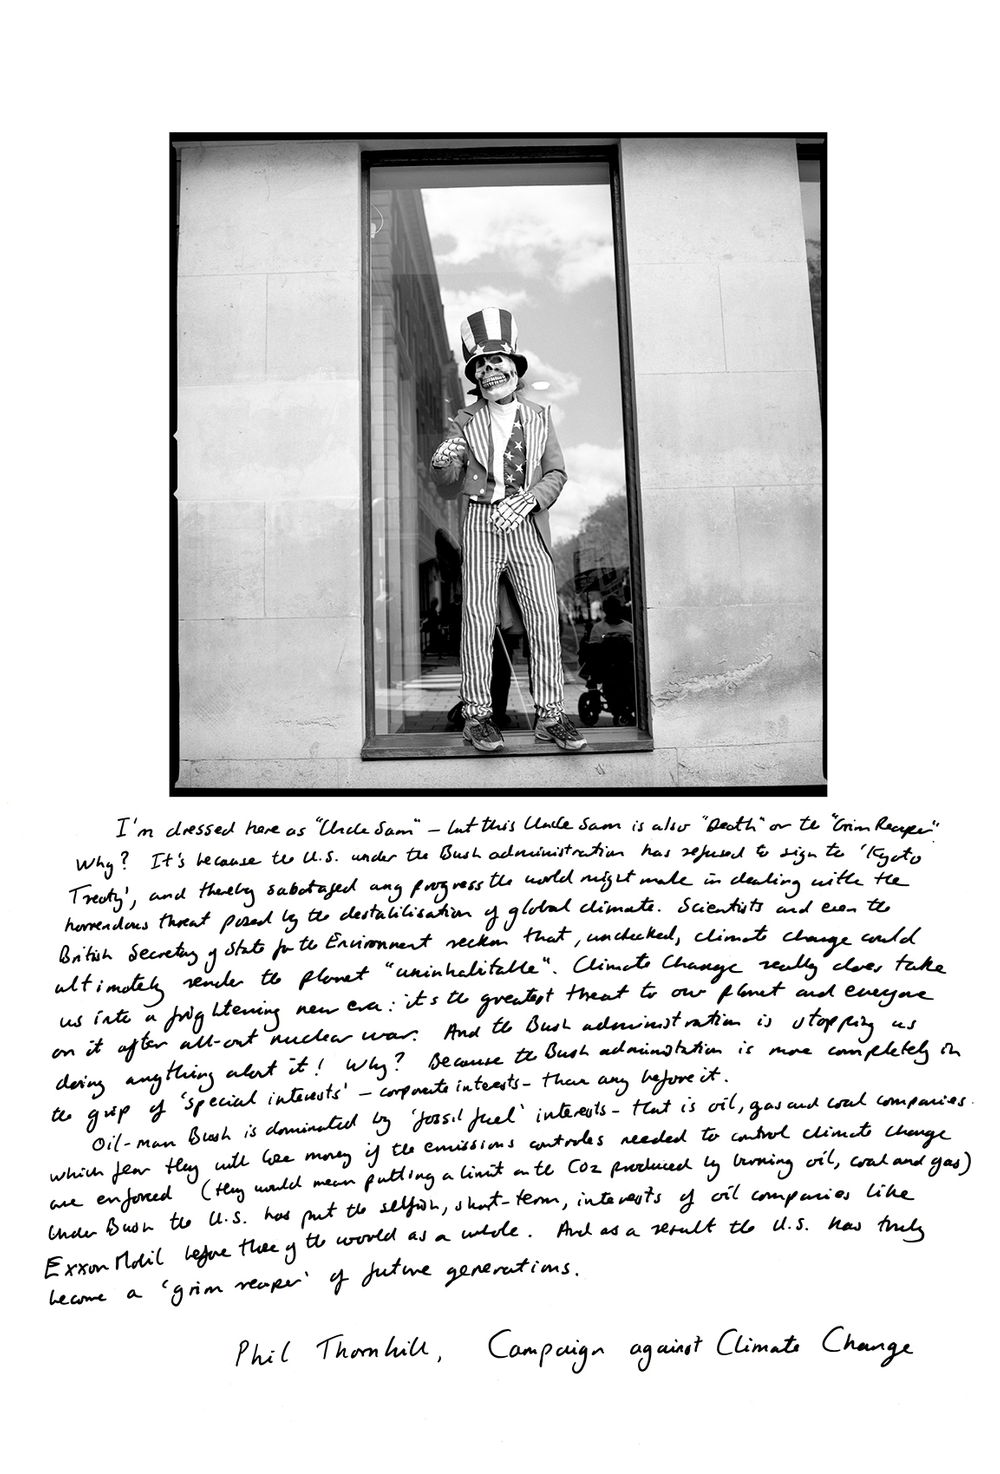 I'm dressed here as "Uncle Sam" – but this Uncle Sam is also "Death" or the "Grim Reaper"
Why? It's because the U.S. under the Bush administration has refused to sign the 'Kyoto
Treaty', and thereby sabotaged any progress the world might make in dealing with the
horrendous threat posed by the destabilisation of global climate. Scientists and even the
British Secretary of State for the Environment reckon that, unchecked, climate change could
ultimately render the planet "uninhabitable". Climate Change really does take
us into a frightening new era: it's the greatest threat to our planet and everyone
on it after all-out nuclear war. And the Bush administration is stopping us
doing anything about it! Why? Because the Bush administration is more completely in
the grip of 'special interests' – corporate interests – than any before it.
Oil-man Bush is dominated by 'fossil fuel' interests – that is oil, gas and coal companies.
which fear they will lose money if the emissions controls needed to control climate change
are enforced (they would mean putting a limit on the CO2 produced by burning oil, coal and gas)
Under Bush the U.S. has put the selfish, short-term, interests of oil companies like
Exxon Mobil before those of the world as a whole. And as a result the U.S. has truly
become a 'grim reaper' of future generations.
Phil Thornhill, Campaign against Climate Change